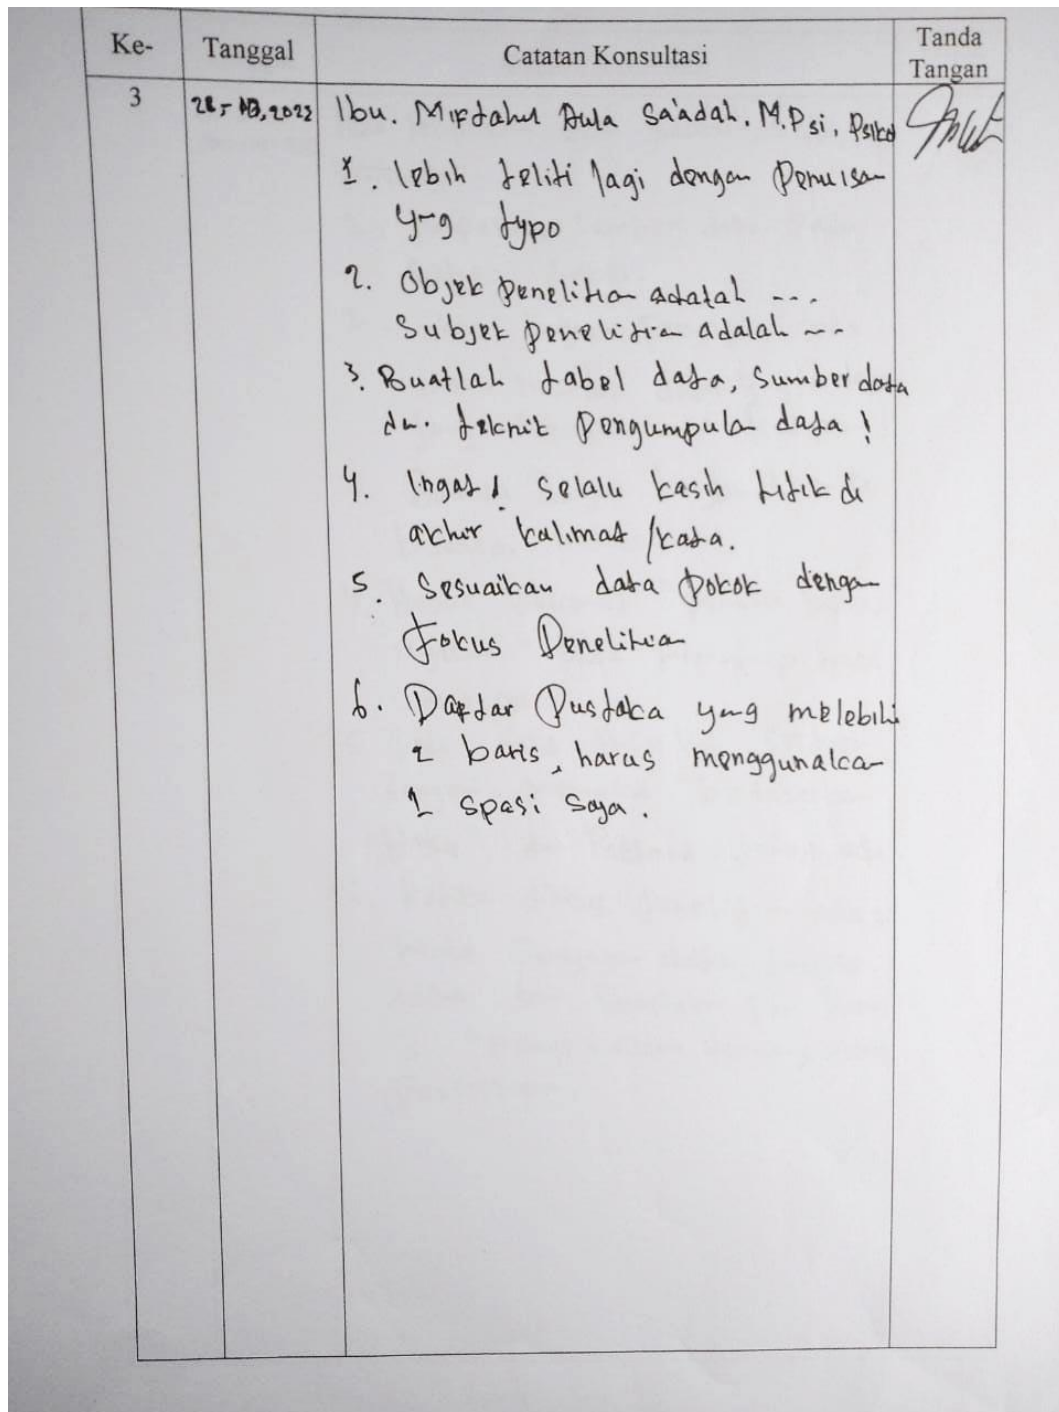 Ke- Tanggal Catatan Konsultasi Tanda Tangan
3 Ibu. Miftahul Aula Sa'adah. M.Psi, Psikol
1. lebih teliti lagi dengan Penulisan
yang typo
2. Objek penelitian adalah ---
Subjek penelitian adalah ---
3. Buatlah tabel data, Sumber data
dan teknik Pengumpulan data !
4. Ingat ! selalu kasih titik di
akhir kalimat / kata.
5. Sesuaikan data pokok dengan
Fokus Penelitian
6. Daftar Pustaka yang melebihi
2 baris, harus menggunakan
1 spasi saja.